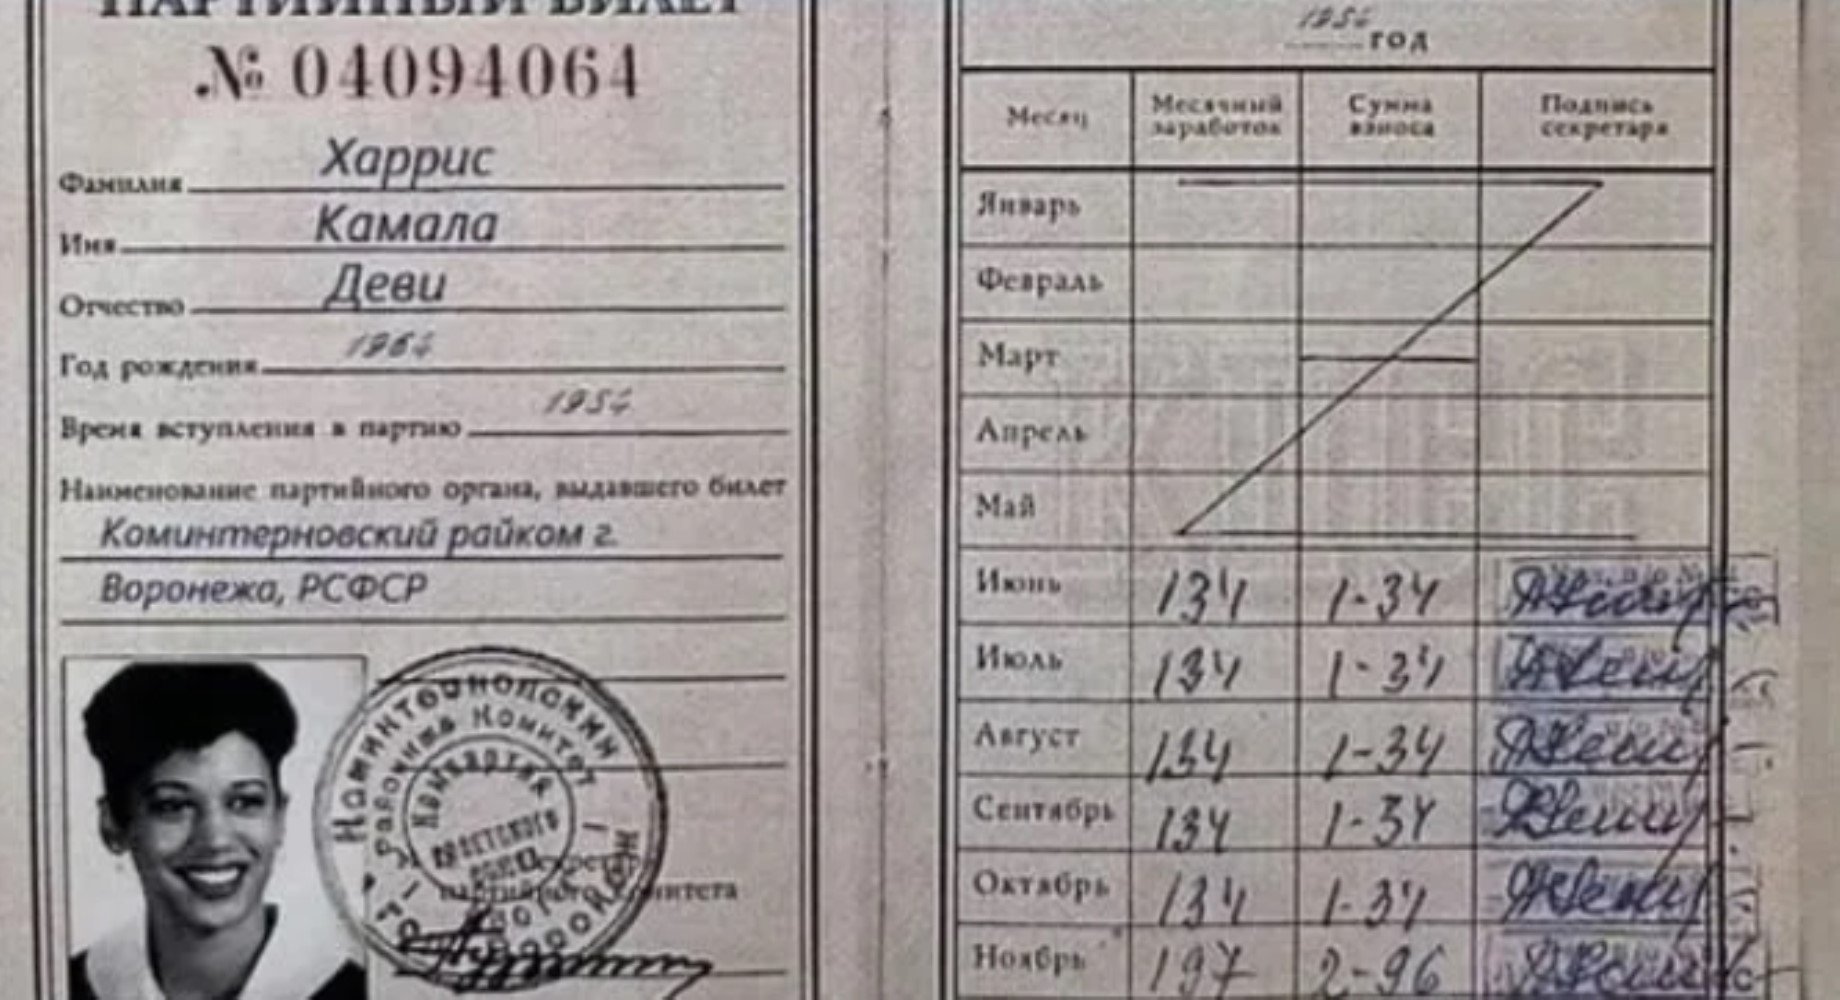 ПАРТИЙНЫЙ БИЛЕТ
№ 04094064
Фамилия Харрис
Имя Камала
Отчество Деви
Год рождения 1964
Время вступления в партию 1954
Наименование партийного органа, выдавшего билет
Коминтерновский райком г.
Воронежа, РСФСР
партийного комитета
год
Месяц Месячный заработок Сумма взноса Подпись секретаря
Январь
Февраль
Март
Апрель
Май
Июнь 134 1-34
Июль 134 1-34
Август 134 1-34
Сентябрь 134 1-34
Октябрь 134 1-34
Ноябрь 197 2-96